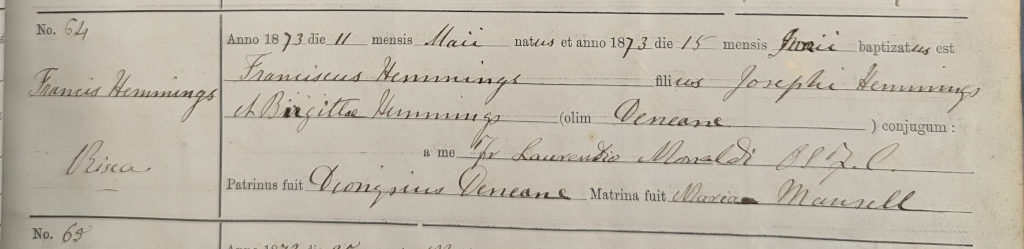 No. 64
Anno 1873 die 11 mensis Maii natus et anno 1873 die 15 mensis Junii baptizatus est
Francis Hemmings
Franciscus Hemmings filius Josephi Hemmings
et Birgittae Hemmings (olim Deneane ) conjugum :
Risca
a me Fr Laurentio Monaldi
Patrinus fuit Dionysius Deneane Matrina fuit Maria Mansell
No. 65
Anno 1873 die mensis